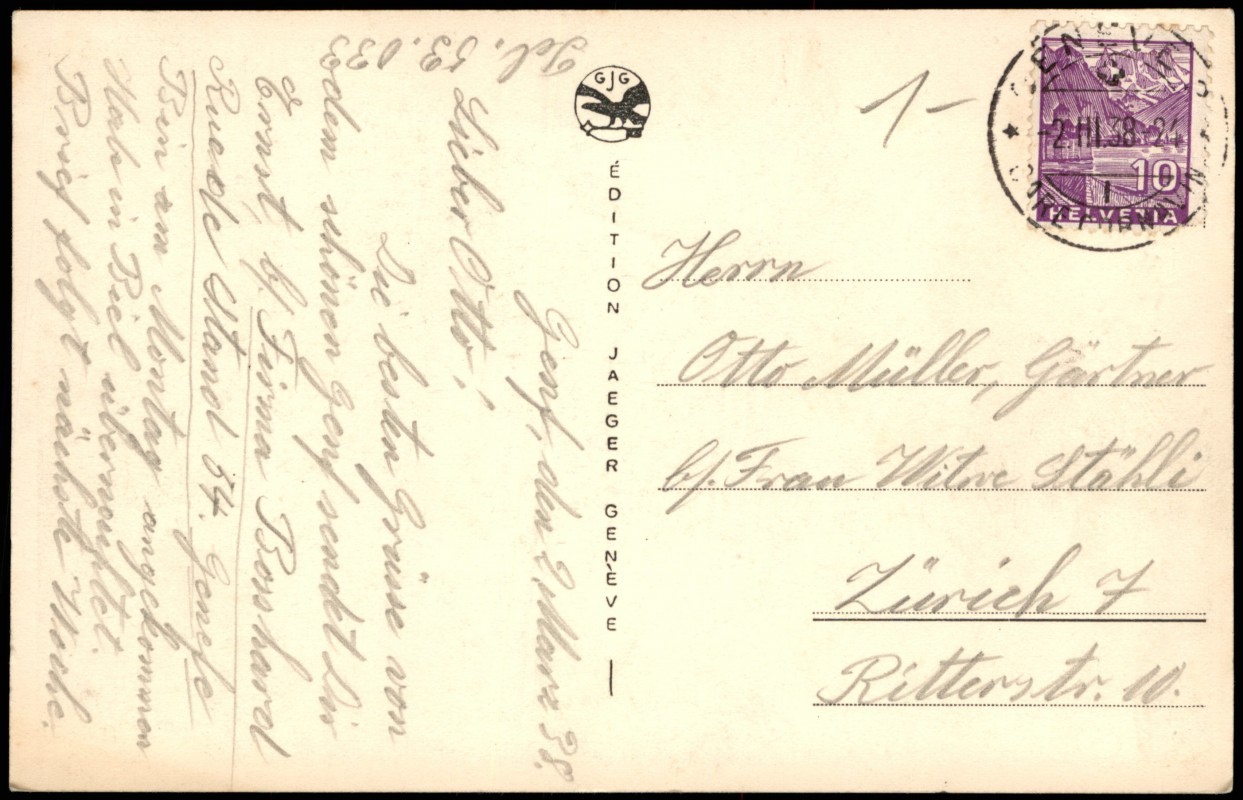 Tel. 53.033
Genf, den 2 März 38.
Lieber Otto,
Die besten Grüsse von
dem schönen Genf sendet Dir
Ernst b/ Firma Bosshard
Rue de Stand 54. Genefe
Bin am Montag angekommen
Hab in Biel übernachtet.
Brief folgt nächste Woche.
GJG
ÉDITION JAEGER GENÈVE
1-
GENÈVE
-2.III.38-21
1
10
HELVETIA
Herrn
Otto Müller, Gärtner
b/. Frau Witwe Stähli
Zürich 7
Ritterstr. 10.